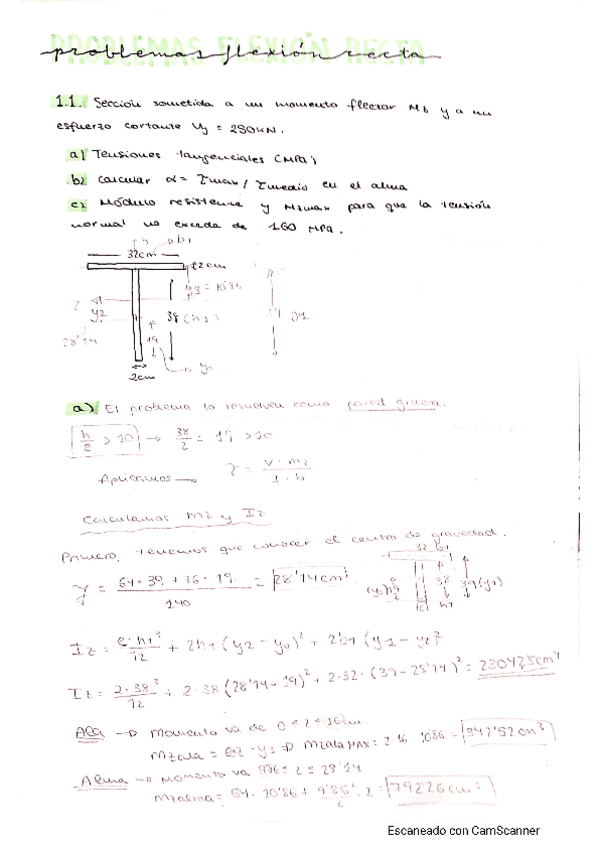 problemas flexión recta
1.1. Sección sometida a un momento flector Mb y a un
esfuerzo cortante Vy = 250kN.
a) Tensiones tangenciales (MPa)
b) calcular α = τmax / τmedio en el alma
c) Módulo resistente y Mzmax para que la tensión
normal no exceda de 160 MPa.
b1
32cm
2cm
y3 = 10'86
z
y2
38 (h1)
y1
28'14
19
y0
2cm
a) El problema lo resuelven como pared gruesa.
h/e > 10 → 38/2 = 19 > 10
Aplicamos → τ = V · mz / I · b
Calculamos Mz y Iz
Primero, tenemos que conocer el centro de gravedad.
32 b1
y = 64 · 39 + 76 · 19 / 140 = 28'14 cm
38 39 (y1)
h1
Iz = e · h1³ / 12 + 2h1 (y2 - y0)² + 2b1 (y1 - y2)²
Iz = 2 · 38³ / 12 + 2 · 38 (28'14 - 19)² + 2 · 32 · (39 - 28'14)² = 23042,5cm⁴
Ala → Momento va de 0 ≤ z ≤ 16cm
Mzala = ez · y3 ⇒ Mzala MAX = 2 · 16 · 10'86 = 347'52 cm³
Alma → Momento va 9'86 ≤ z ≤ 28'14
Mzalma = 64 · 10'86 + 9'86²/2 · 2 = 792'26 cm³
Escaneado con CamScanner